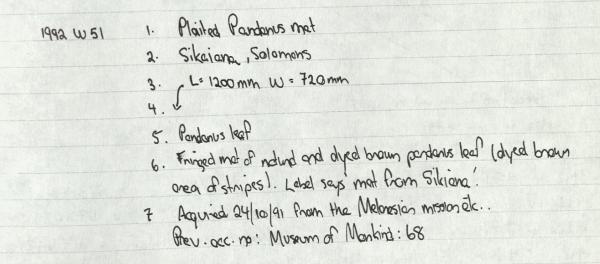 1992 W 51 1. Plaited Pandanus mat
2. Sikaiana, Solomons
3. L= 1200mm W = 720mm
4.
5. Pandanus leaf
6. Fringed mat of natural and dyed brown pandanus leaf (dyed brown
area of stripes). Label says mat from Sikiana'.
7 Acquired 24/10/91 from the Melanesian mission etc..
Prev. acc. no: Museum of Mankind: 68